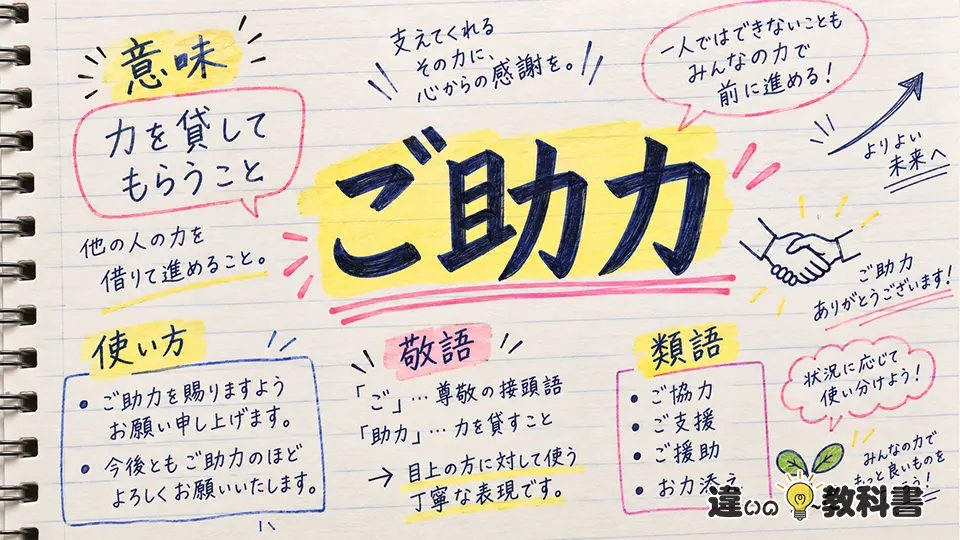 意味
力を貸して
もらうこと
他の人の力を
借りて進めること。
支えてくれる
その力に、
心からの感謝を。
一人ではできないことも
みんなの力で
前に進める！
よりよい
未来へ
ご助力
ご助力
ありがとうございます！
使い方
• ご助力を賜りますよう
お願い申し上げます。
• 今後ともご助力のほど
よろしくお願いいたします。
敬語
「ご」… 尊敬の接頭語
「助力」… 力を貸すこと
→ 目上の方に対して使う
丁寧な表現です。
類語
• ご協力
• ご支援
• ご援助
• お力添え
状況に応じて
使い分けよう！
みんなの力で
もっと良いものを
違いの教科書